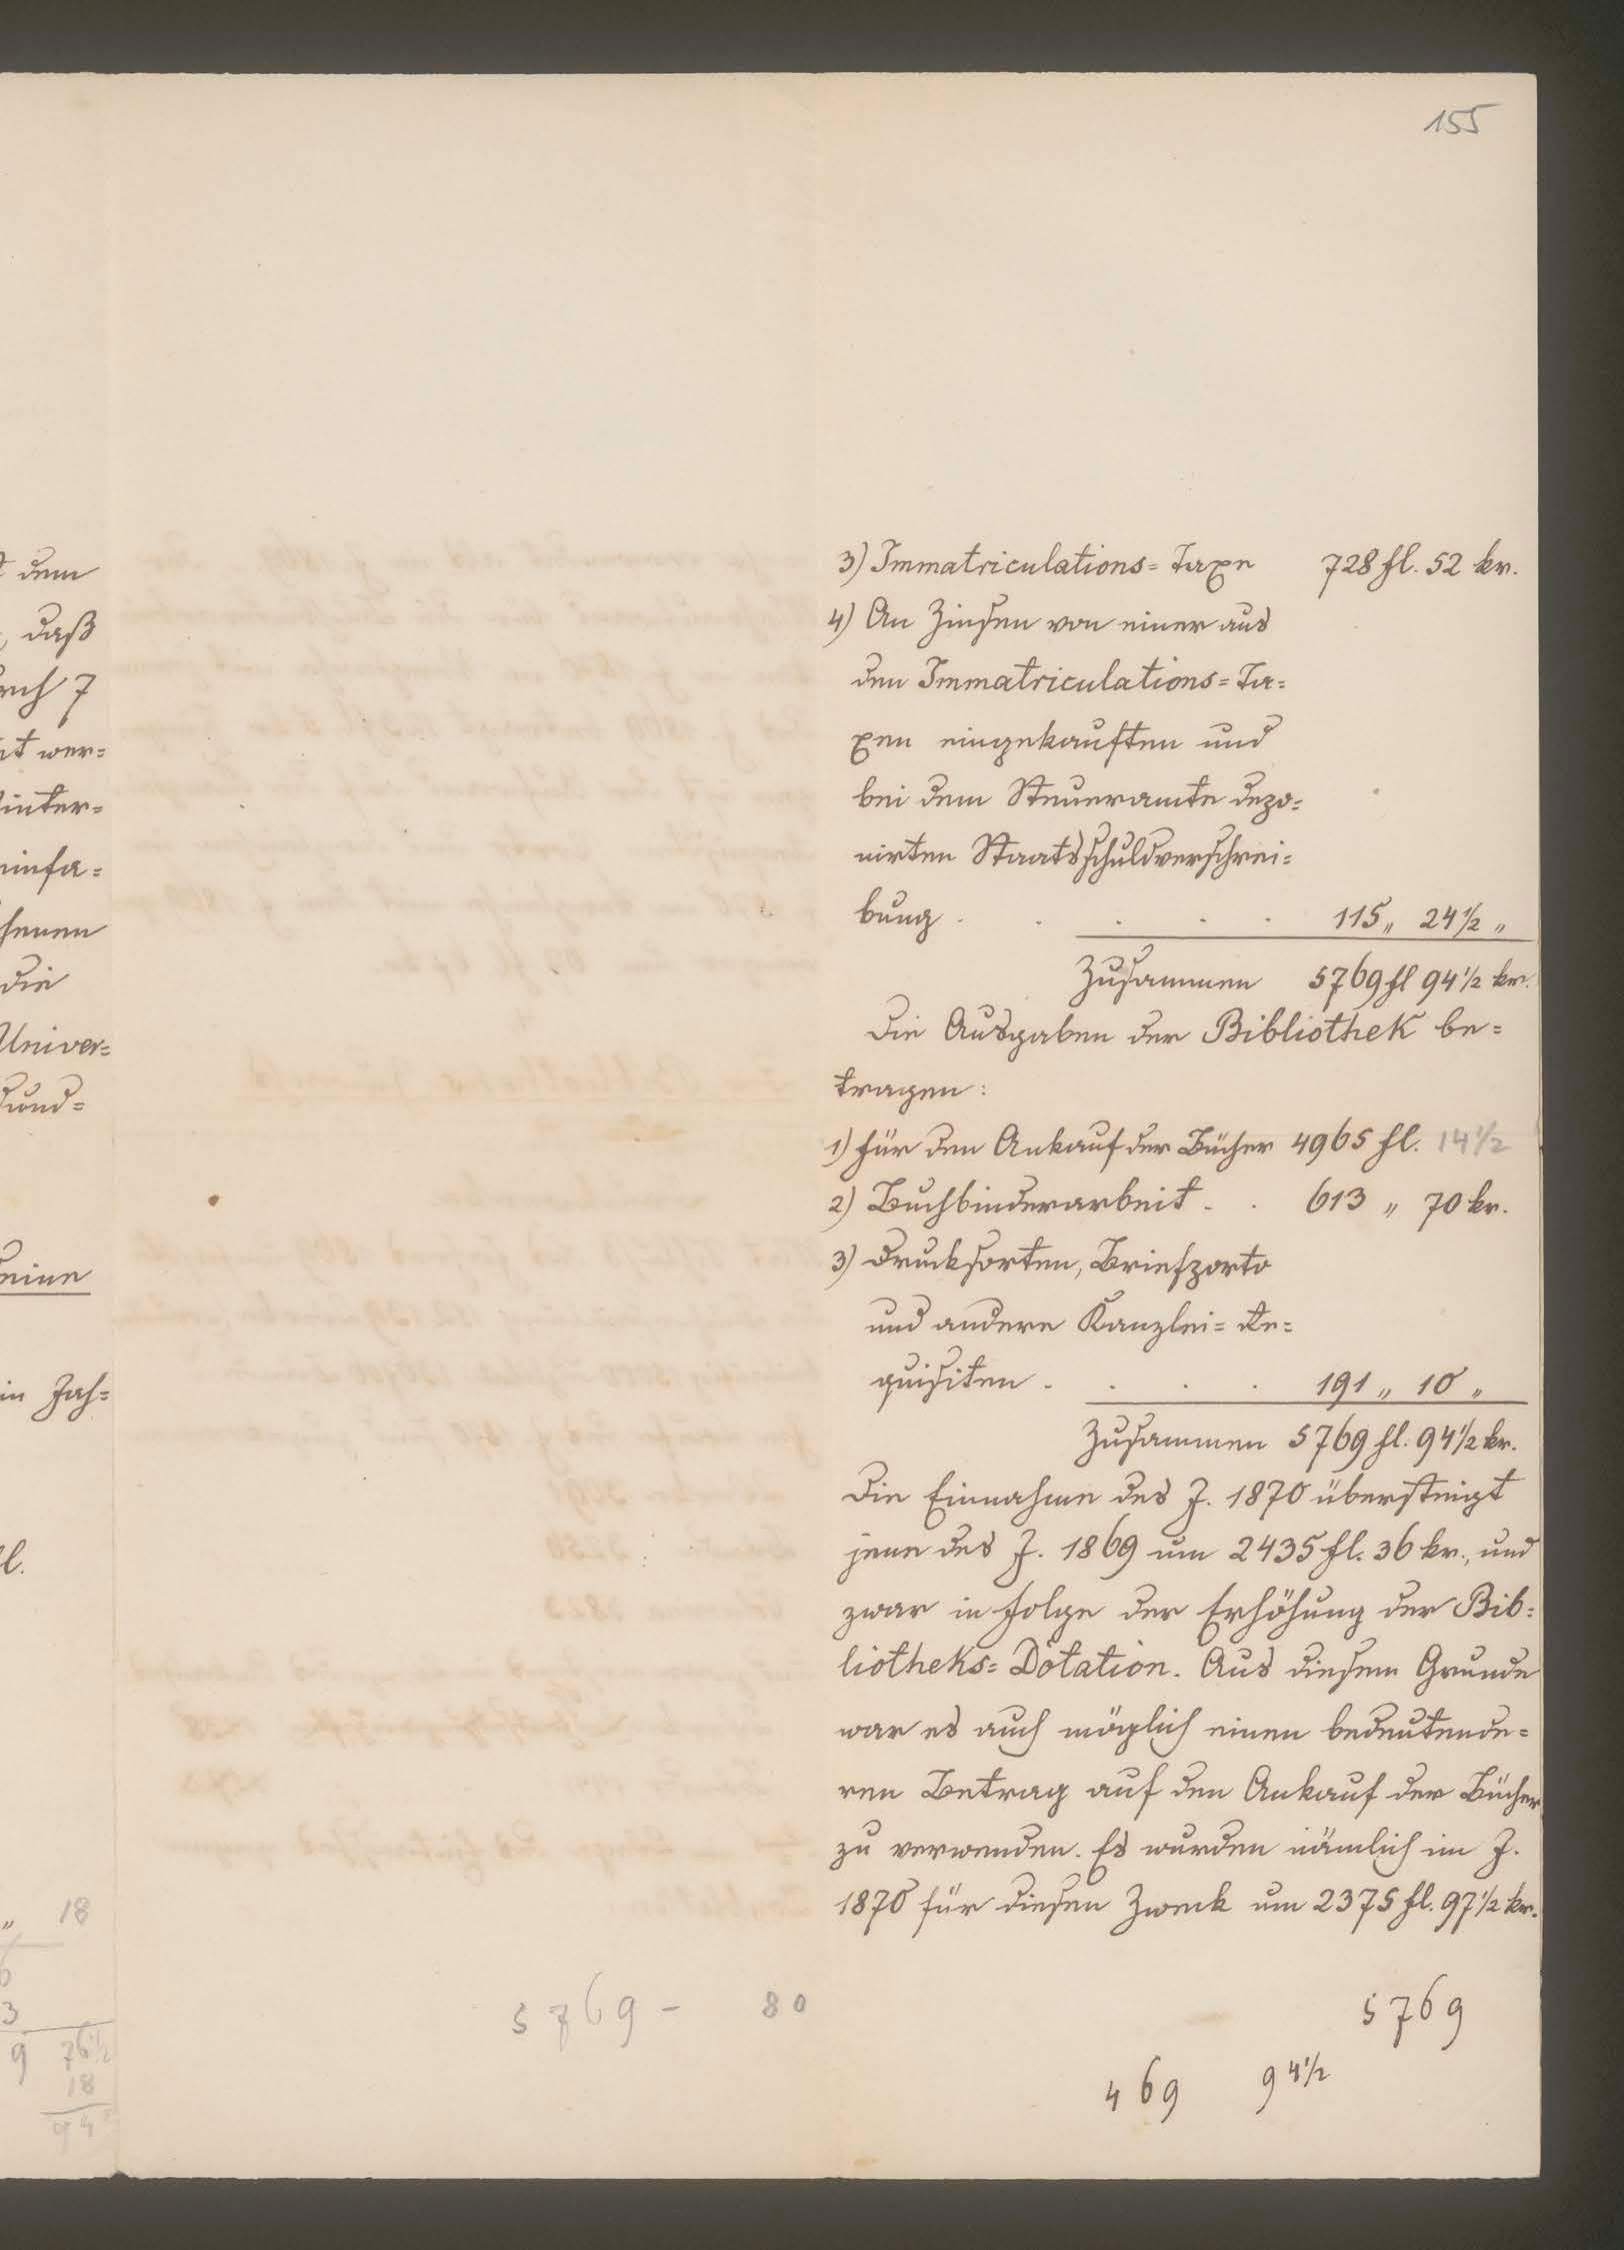 155
t dem
, daß
rch 7
it wer=
inter=
einfa=
senen
die
Univer=
und=
eine
in Jah=
l.
" 18
6
3
9 76½
18
94
3) Immatriculations=Taxe 728 fl. 52 kr.
4) An Zinsen von einer aus
den Immatriculations=Ta=
xen eingekauften und
bei dem Steueramte depo=
nirten Staatsschuldverschrei=
bung . . . . . 115 „ 24½ „
Zusammen 5769 fl 94½ kr.
Die Ausgaben der Bibliothek be=
tragen:
1) für den Ankauf der Bücher 4965 fl. 14½
2) Buchbinderarbeit . . 613 „ 70 kr.
3) Drucksorten, Briefporto
und andere Kanzlei=Re=
quisiten . . . . 191 „ 10 „
Zusammen 5769 fl. 94½ kr.
Die Einnahme des J. 1870 übersteigt
jene des J. 1869 um 2435 fl. 36 kr., und
zwar in Folge der Erhöhung der Bib=
liotheks=Dotation. Aus diesem Grunde
war es auch möglich einen bedeutende=
ren Betrag auf den Ankauf der Bücher
zu verwenden. Es wurden nämlich im J.
1870 für diesen Zweck um 2375 fl. 97½ kr.
5769 - 80
5769
469 94½